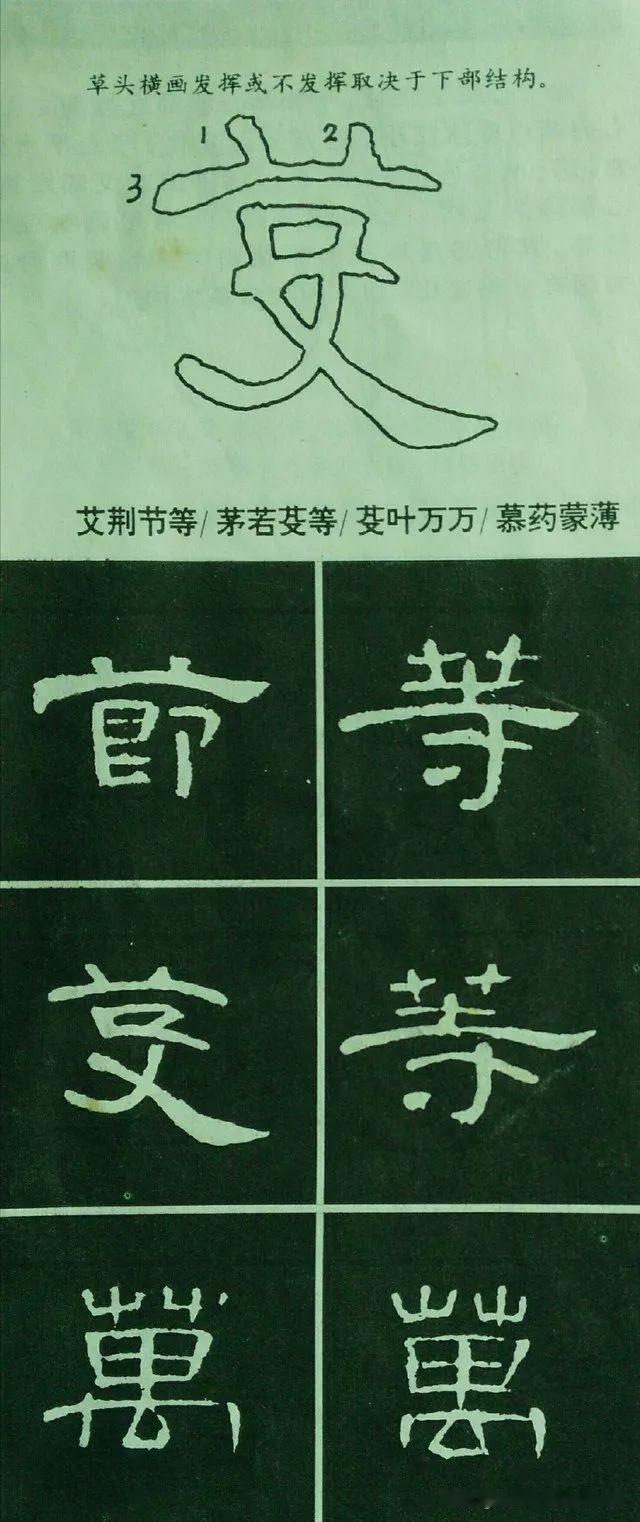 草头横画发挥或不发挥取决于下部结构。
1 2
3
艾荆节等/茅若芟等/芟叶万万/慕药蒙薄
節 等
芟 等
萬 萬